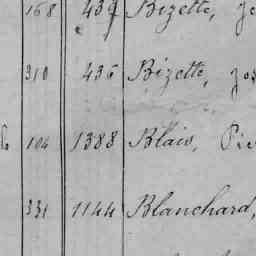 168 439 Bizette, Jo
310 436 Bizette, Jos
104 1388 Blais, Pie
331 1144 Blanchard,